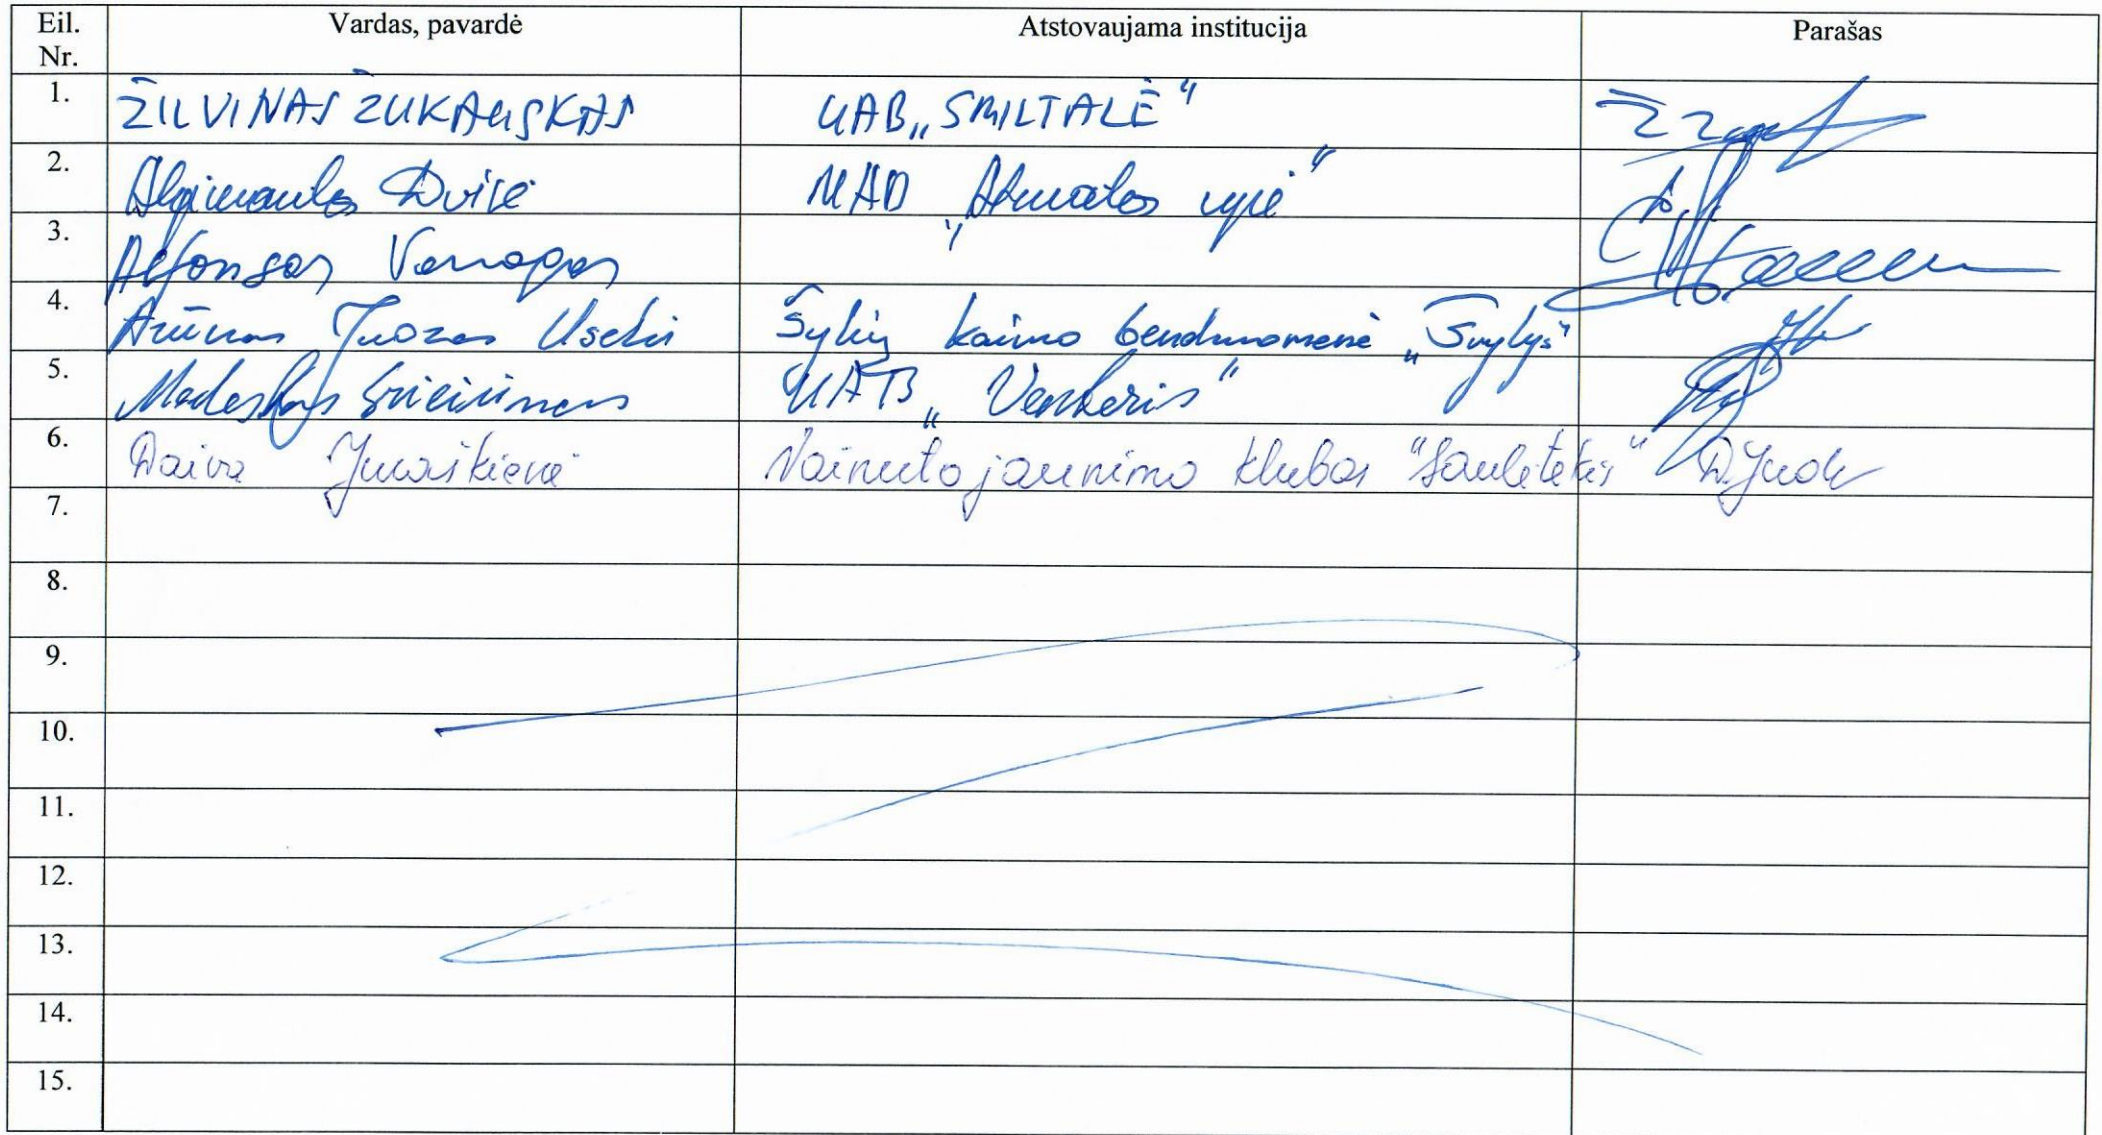 Eil. Nr. Vardas, pavardė Atstovaujama institucija Parašas
1. ŽILVINAS ŽUKAUSKAS UAB „SMILTALĖ"
2. Algimantas MAD „Atmatos vyžė"
3. Alfonsas Vanagas
4. Arūnas Juozas Uselis Šylių kaimo bendruomenė „Švylys"
5. UAB „Venteris"
6. Daiva Vainuto jaunimo klubas "Saulėtekis"
7.
8.
9.
10.
11.
12.
13.
14.
15.